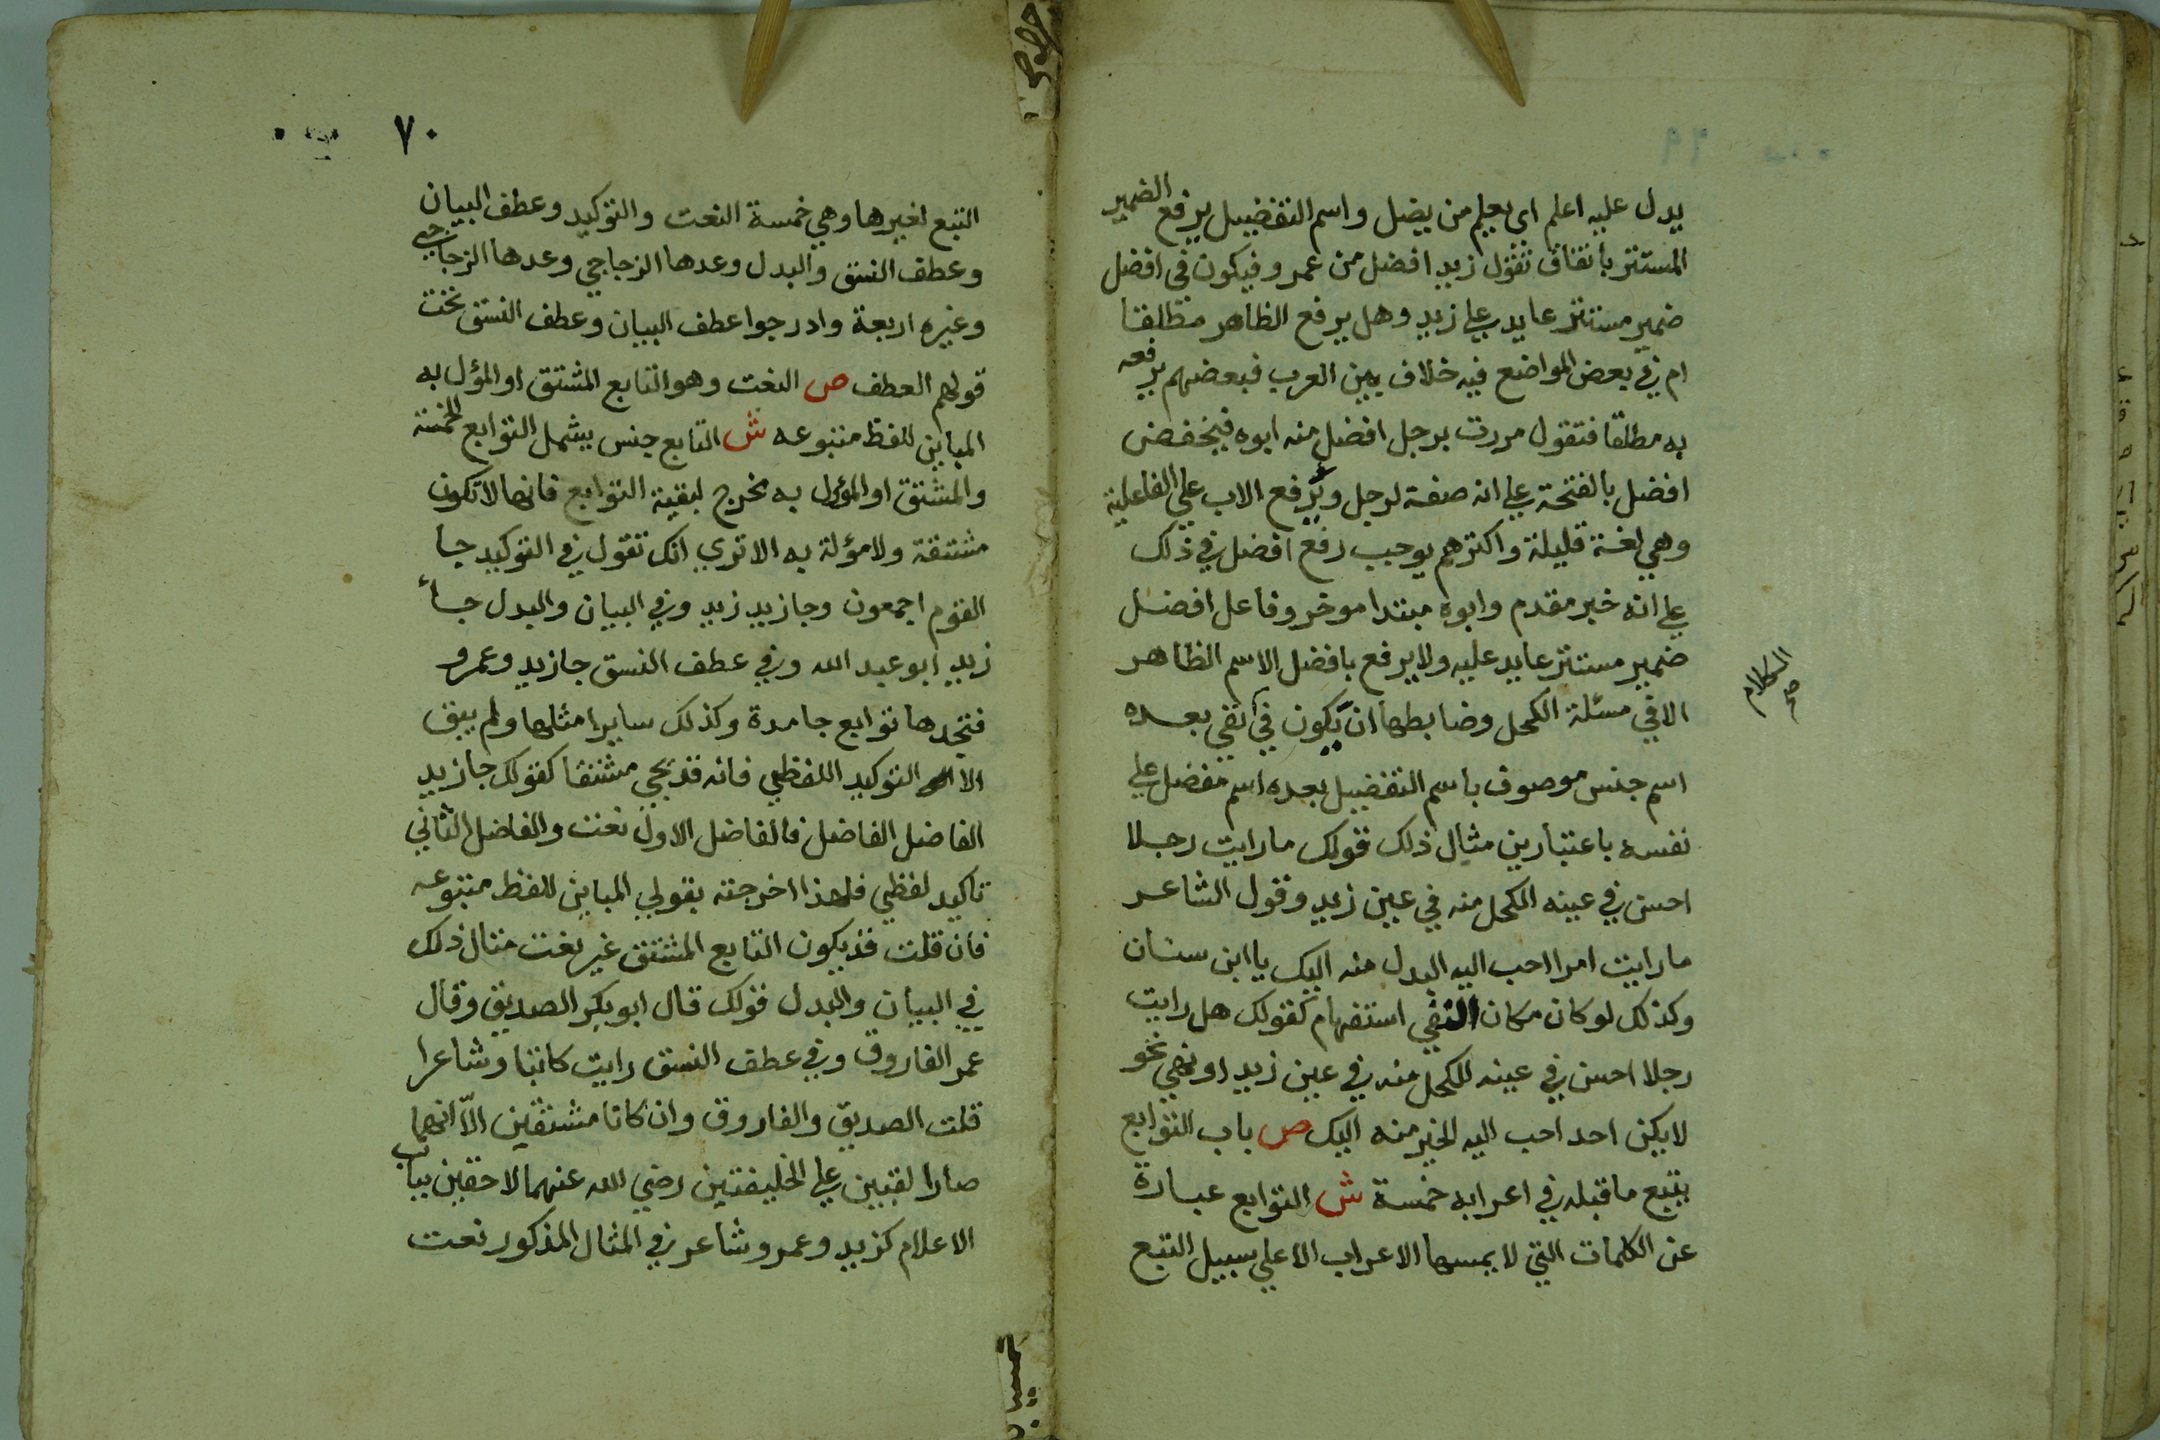 يدل عليه اعلم اى يعلم من يضل واسم التفضيل يرفع الضمير
المستتر باتفاق تقول زيد افضل من عمر وفيكون في افضل
ضمير مستتر عايد علي زيد وهل يرفع الظاهر مطلقا
ام في بعض المواضع فيه خلاف بين العرب فبعضهم يرفعه
به مطلقا فتقول مررت برجل افضل منه ابوه فيخفض
افضل بالفتحة علي انه صفة لرجل ويرفع الاب علي الفاعلية
وهي لغة قليلة واكثرهم يوجب رفع افضل في ذلك
علي انه خبر مقدم وابوه مبتدا موخر وفاعل افضل
ضمير مستتر عايد عليه ولا يرفع بافضل الاسم الظاهر
الا في مسئلة الكحل وضابطها ان يكون في نفي بعده
الكلام صح
اسم جنس موصوف باسم التفضيل بعده اسم مفضل علي
نفسه باعتبارين مثال ذلك قولك ما رايت رجلا
احسن في عينه الكحل منه في عين زيد وقول الشاعر
ما رايت امرا احب اليه البدل منه اليك يا ابن سنان
وكذلك لو كان مكان النفي استفهام كقولك هل رايت
رجلا احسن في عينه الكحل منه في عين زيد او نهي نحو
لا يكن احد احب اليه الخير منه اليك ص باب التوابع
يتبع ما قبله في اعرابه خمسة ش التوابع عبارة
عن الكلمات التي لا يمسها الاعراب الا علي سبيل التبع
٧٠
التبع لغيرها وهي خمسة النعت والتوكيد وعطف البيان
وعطف النسق والبدل وعدها الزجاجي وعدها الزجاجي
وغيره اربعة وادرجوا عطف البيان وعطف النسق تحت
قولهم العطف ص النعت وهو التابع المشتق او المؤل به
المباين للفظ متبوعه ش التابع جنس يشمل التوابع الخمسة
والمشتق او المؤل به مخرج لبقية التوابع فانها لا تكون
مشتقة ولا مؤلة به الا تري انك تقول في التوكيد جا
القوم اجمعون وجا زيد زيد وفي البيان والبدل جأ
زيد ابو عبد الله وفي عطف النسق جا زيد وعمرو
فتجدها توابع جامدة وكذلك ساير امثلها ولم يبق
الا التوكيد اللفظي فانه قد يجي مشتقا كقولك جا زيد
الفاضل الفاضل فالفاضل الاول نعت والفاضل الثاني
تاكيد لفظي فلهذا اخرجته بقولي المباين للفظ متبوعه
فان قلت قد يكون التابع المشتق غير نعت مثال ذلك
في البيان والبدل قولك قال ابو بكر الصديق وقال
عمر الفاروق وفي عطف النسق رايت كاتبا وشاعرا
قلت الصديق والفاروق وان كانا مشتقين الّا انهما
صارا لقبين علي الخليفتين رضي الله عنهما لاحقين بباب
الاعلام كزيد وعمر وشاعر في المثال المذكور نعت